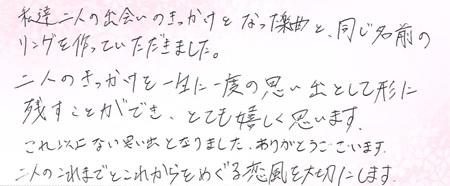 私達二人の出会いのきっかけとなった楽曲と、同じ名前の
リングを作っていただきました。
二人のきっかけを一生に一度の思い出として形に
残すことができ、とても嬉しく思います。
これ以上ない思い出となりました。ありがとうございます。
二人のこれまでとこれからをめぐる恋風を大切にします。